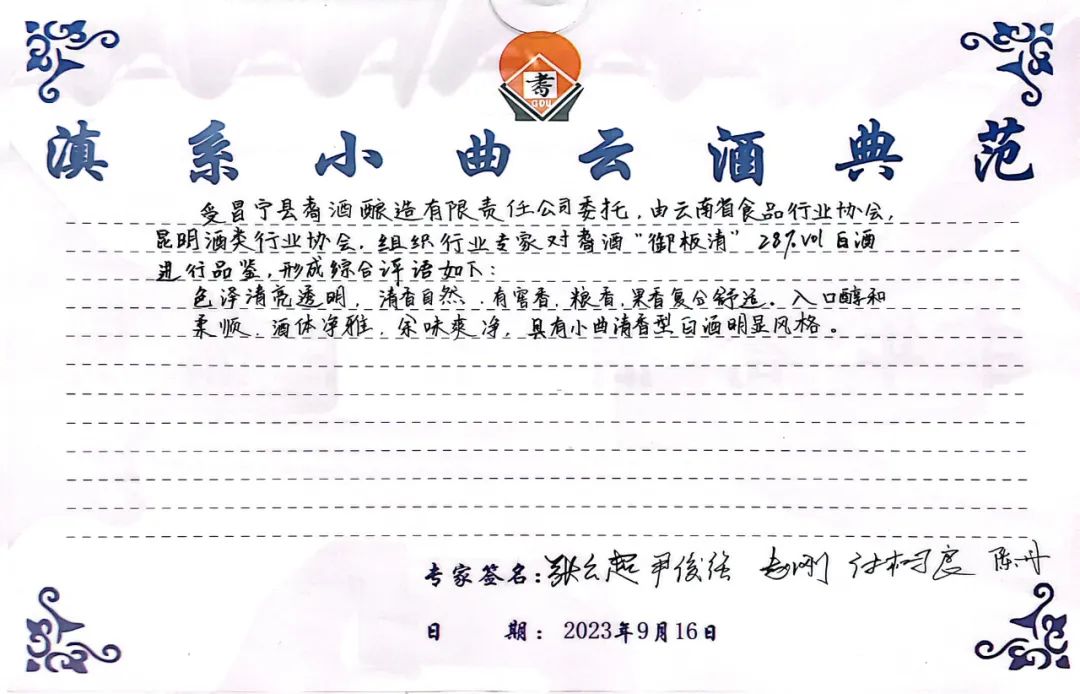 滇系小曲云酒典范
受昌宁县耈酒酿造有限责任公司委托，由云南省食品行业协会，
昆明酒类行业协会，组织行业专家对耈酒“御板清”28%vol白酒
进行品鉴，形成综合评语如下：
色泽清亮透明，清香自然，有窖香，粮香，果香复合舒适。入口醇和
柔顺，酒体净雅，余味爽净，具有小曲清香型白酒明显风格。
专家签名：
日期：2023年9月16日